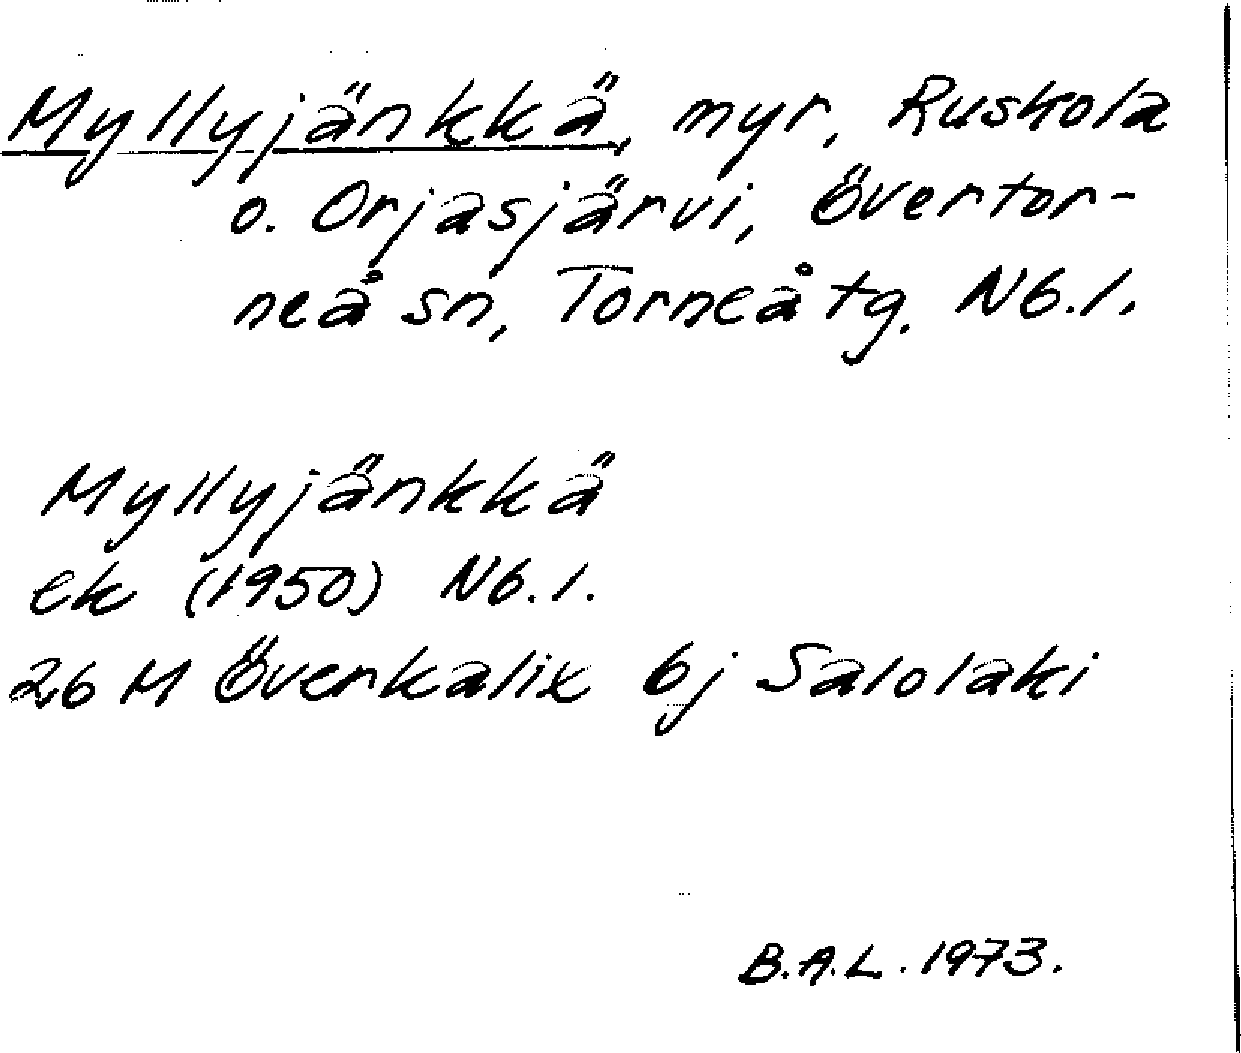 Myllyjänkkä, myr, Ruskola
o. Orjasjärvi, Övertor-
neå sn, Torneå tg. Nb.l.
Myllyjänkkä
ek (1950) Nb.l.
26 M Överkalix 6j Salolaki
B.A.L. 1973.